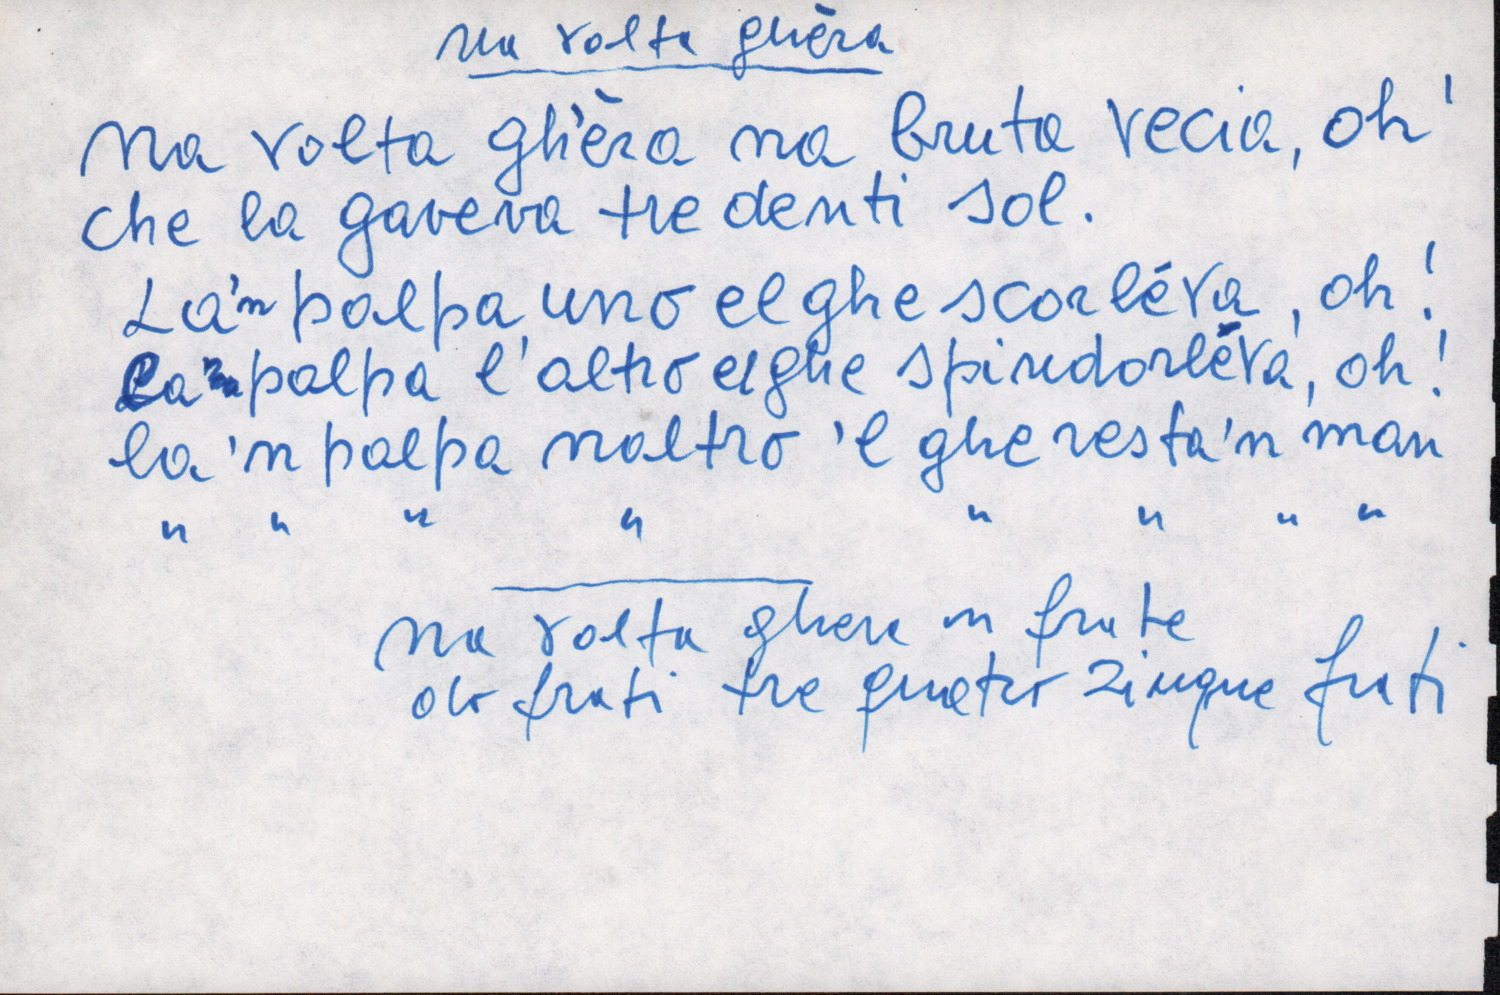 Na volta ghèra
Na volta gh'èra na bruta vecia, oh!
che la gaveva tre denti sol.
La 'n palpa uno el ghe scorléva, oh!
La 'n palpa l'altro el ghe spindorléva, oh!
la 'n palpa naltro 'l ghe resta 'n man
" " " " " " " "
Na volta ghera n frate
do frati tre quatro zinque frati